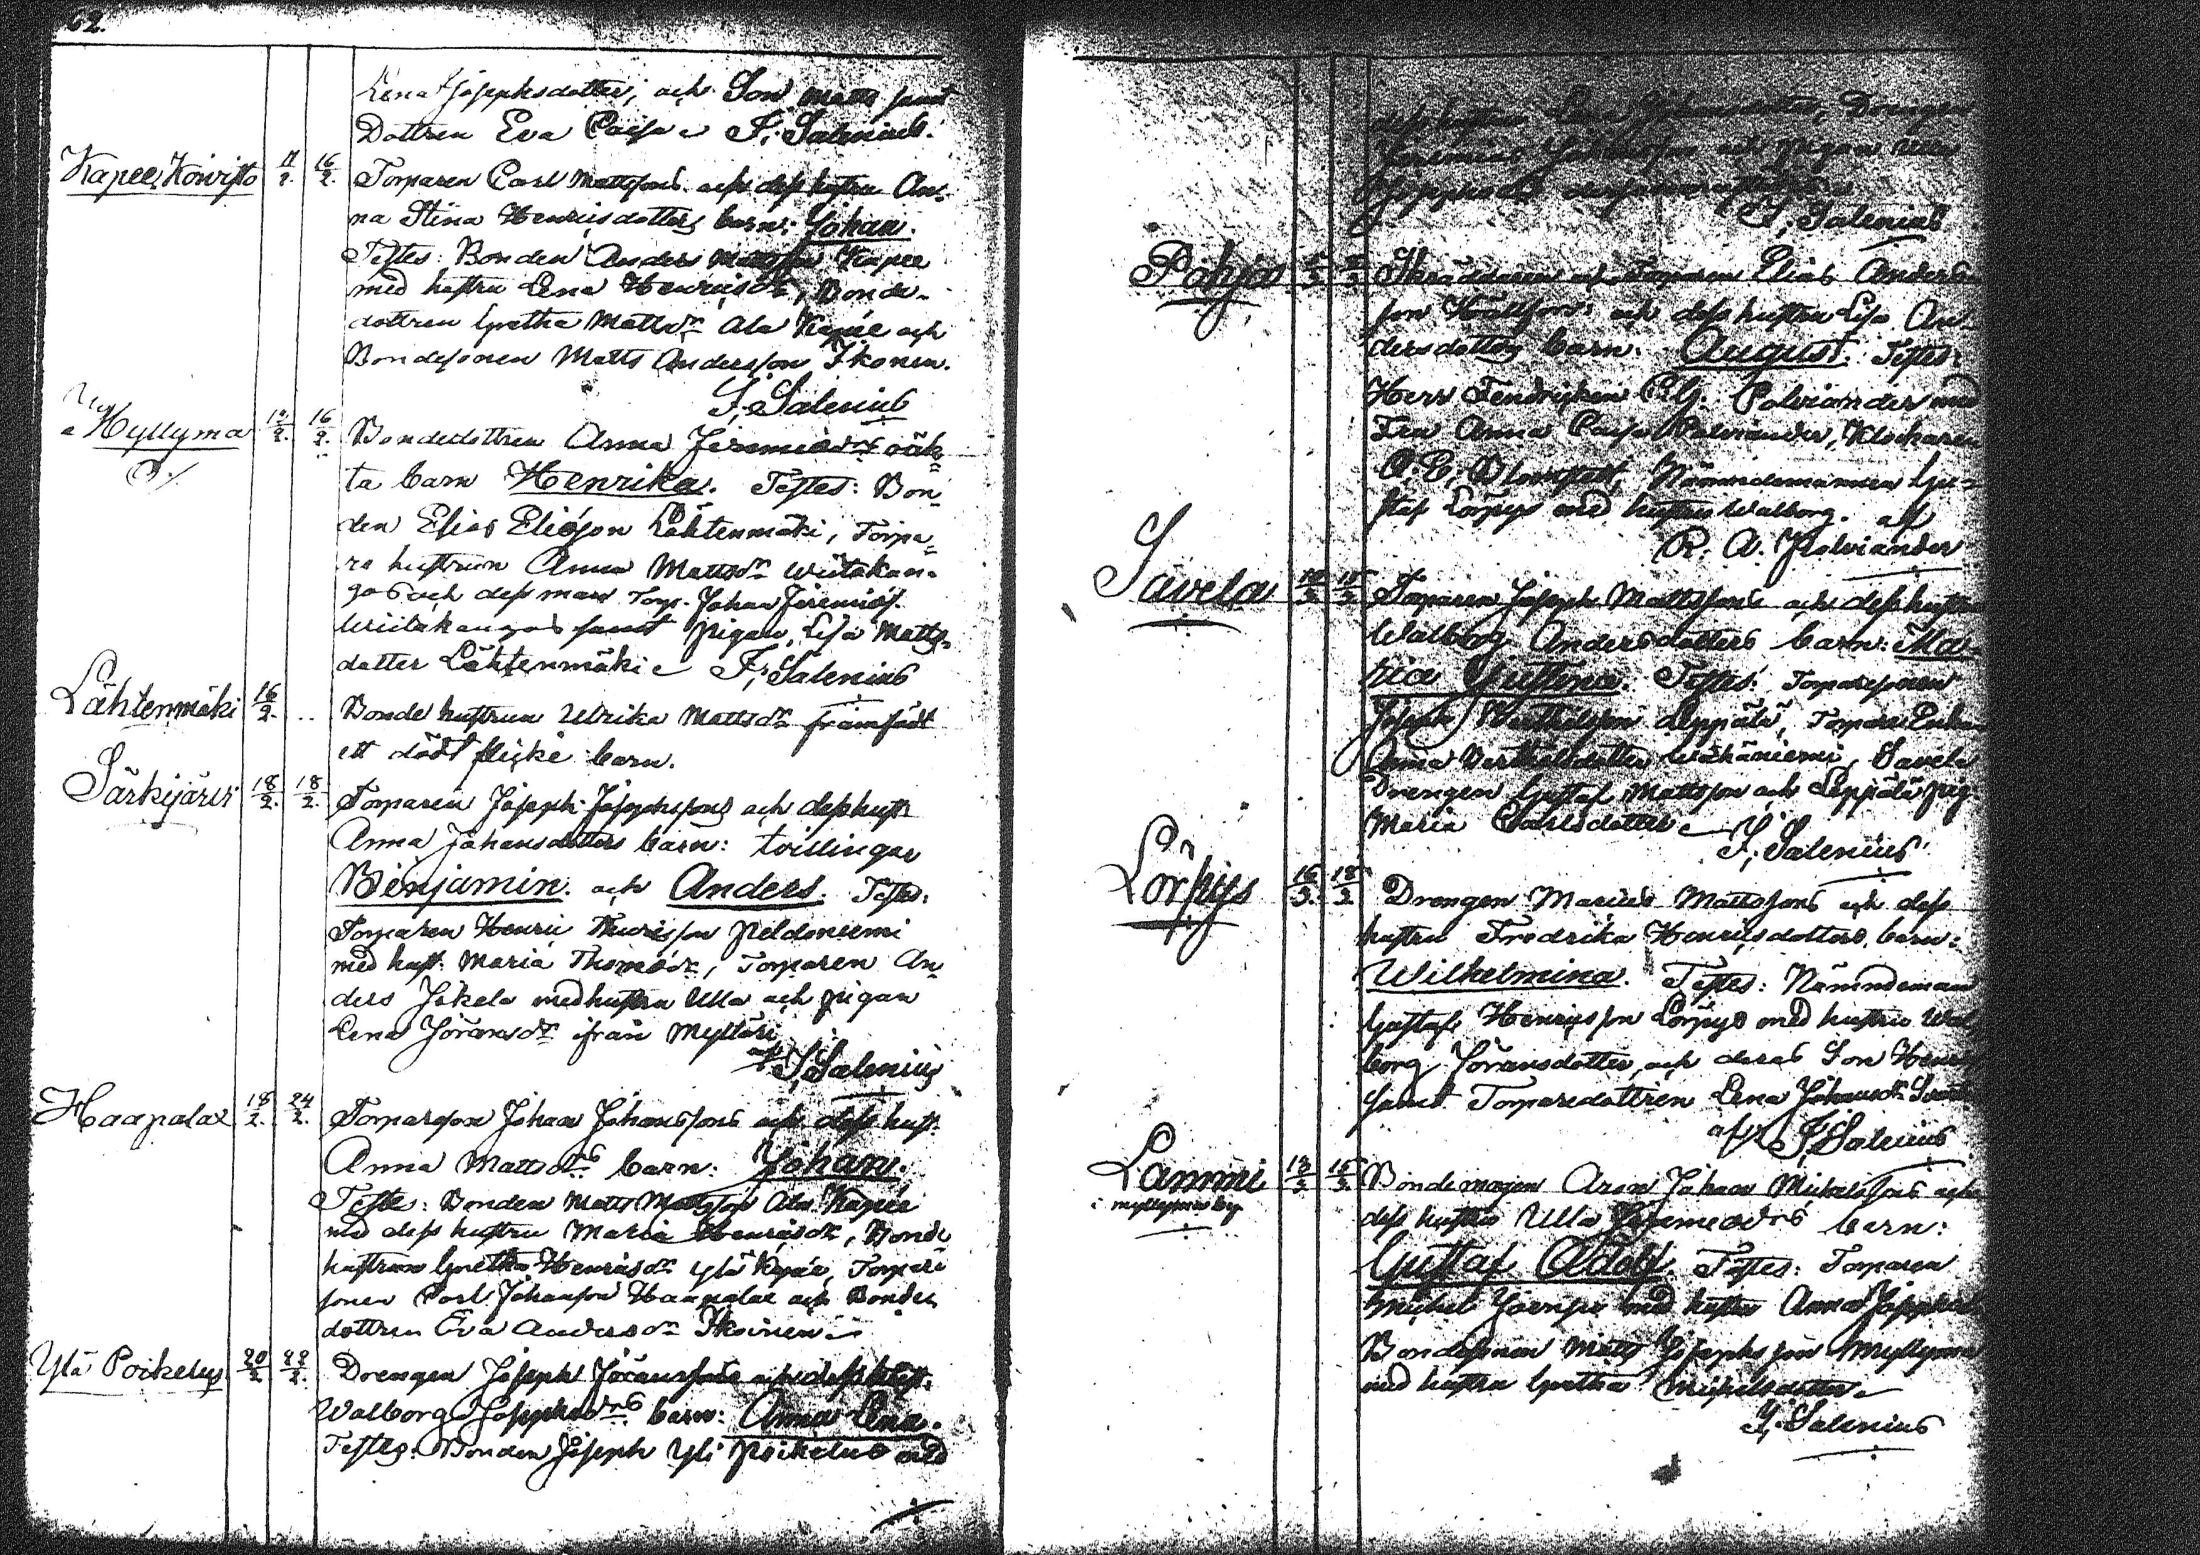 62.
Lena Josephsdotter, och Son Matts samt
Dottren Eva Caisa F. Salenius.
Kapee, Koivisto 11/2. 16/2. Torparen Carl Mattssons och dess hustru An-
na Stina Henricsdotters barn: Johan.
Testes: Bonden Anders Mattsson Kapee
med hustru Lena Henricsdr, Bonde-
dottren Gretha Mattsdr Ala Kapee och
Bondesonen Matts Andersson Ikonen.
F. Salenius
Hyllyma 12/2. 16/2. Bondedottren Anna Jeremiædrs oäk-
ta barn Henrika. Testes: Bon-
den Elias Eliæson Lähtenmäki, Torpa-
re hustrun Anna Mattsdr Wiitakan-
gas och dess man Torp. Johan Jeremiæs.
Wiitakangas samt pigan Lisa Matts-
dotter Lähtenmäki F. Salenius
Lähtenmäki 16/2. .. Bonde hustrun Ulrika Mattsdr framfödt
ett dödt flicke barn.
Särkijärvi 18/2. 18/2. Torparen Joseph Josephssons och dess hust.
Anna Johansdotters barn: tvillingar
Benjamin. och Anders. Testes:
Torparen Henric Henricsson Peldoniemi
med hust. Maria Thomædr, Torparen An-
ders Jokela med hustru Ulla och pigan
Lena Göransdr ifrån Mylläri
af F. Salenius
Haapalax 18/2. 24/2. Torparson Johan Johanssons och dess hust.
Anna Mattsdrs barn: Johan.
Teste: Bonden Matts Mattsson Ala Kapee
med dess hustru Maria Henricsdr, Bonde
hustrun Gretha Henricsdr Ylä Kapee, Torpare
sonen Carl Johansson Haapalax och Bonde
dottren Eva Andersdr Ikoinen
Ylä Poikelus 20/2 22/2. Drengen Joseph Göranssons och dess hust.
Walborg Josephsdrs barn: Anna Lena.
Testes. Bonden Joseph Yli Poikelus med
dess hustru Lena Johansdotter, Drengen
Jeremias Johansson och pigan
F. Salenius
Pohja Skräddaren och Torparen Elias Anders-
son och dess hustru Lisa An-
dersdotters barn: August. Testes:
Herr Fendricken Polviander med
Fru Anna Caisa Polviander, Klockaren
Blomstedt, Nämndemannen Gu-
staf Lörpys med hustru Walborg. af
R. A. Polviander
Savela Torparen Joseph Mattssons och dess hustru
Walborg Andersdotters barn: Ma-
ria Gustava. Testes: Torparesonen
Joseph Leppälä, Torpare Enkan
Anna Bertilsdotter Wähäniemi, Savela
Drengen Gustaf Mattsson och Leppälä pig.
Maria Carlsdotter F. Salenius
Lörpys 16/3. 18/3. Drengen Marcus Mattssons och dess
hustru Fredrika Henricsdotters barn:
Wilhelmina. Testes: Nämndeman
Gustaf Henricsson Lörpys med hustru Wal-
borg Göransdotter, och deras Son
samt Torparedottren Lena Johansdr
af F. Salenius
Lammi 13/3 15/3. Bondemågen Aron Johan Michelssons och
i myllymä by dess hustru Ulla Jeremiædrs barn:
Gustaf Adolf. Testes: Torparen
Michel med hustru Anna
Bondesonen Matts Josephsson Myllymä
med hustru Gretha Michelsdotter
F. Salenius